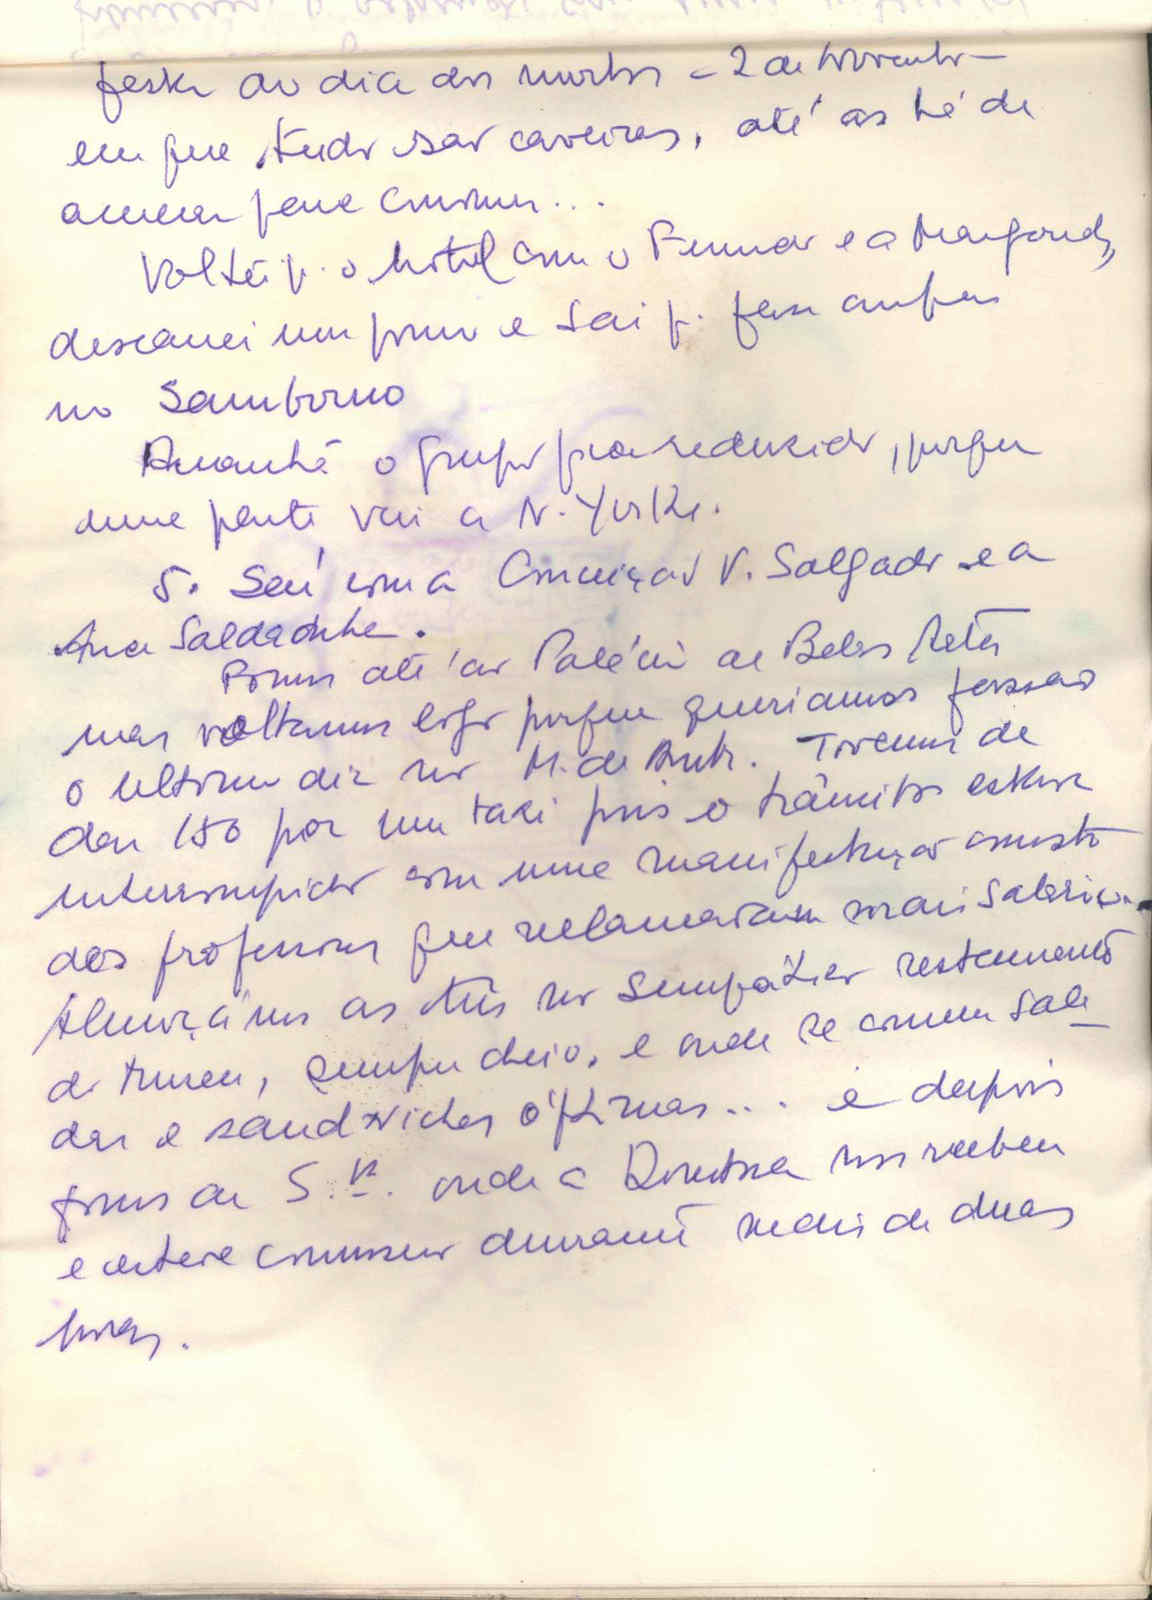 festa do dia dos mortos – 2 de Novembro –
em que tudo são caveiras, até as há de
açucar para comer...
Voltei p. o hotel com o Fernando e a Margarida,
descansei um pouco e saí p. fazer compras
no Sanborns
Amanhã o grupo fica reduzido, porque
uma parte vai a N. York.
5. Saí com a Conceição V. Salgado e a
Ana Saldanha.
Fomos até ao Palácio de Belas Artes
mas voltamos logo porque queriamos passar
o ultimo dia no M. de Antr. Tivemos de
dar 150 por um taxi pois o trânsito estava
interrompido com uma manifestação
dos professores que reclamavam mais salário.
Almoçámos as três no simpático restaurante
do museu, sempre cheio, e onde se comem sala
das e sandwiches óptimas... e depois
fomos ao S. onde a Doutora nos recebeu
e esteve connosco durante mais de duas
horas.